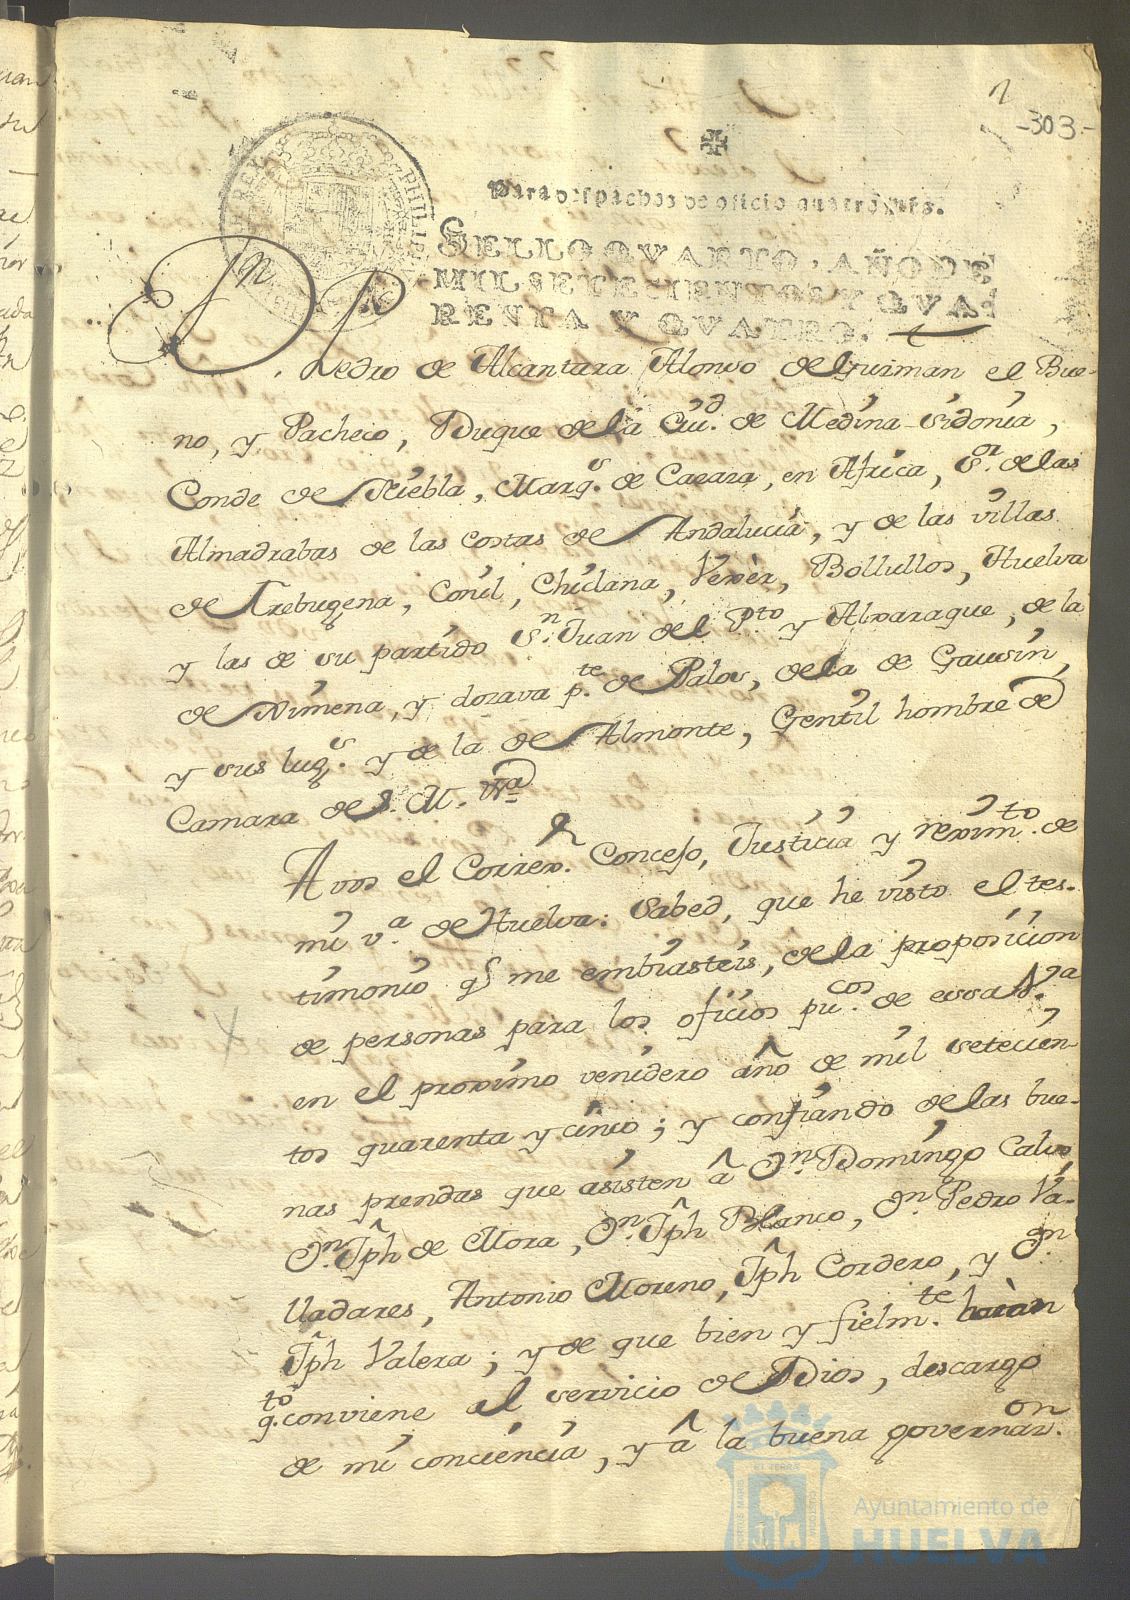 -303-
Para despachos de oficio quatro mrs.
SELLO QVARTO, AÑO DE
MIL SETECIENTOS Y QVA-
RENTA Y QVATRO.
Dn Pedro de Alcantara Alonso de Guzman el Bue-
no, y Pacheco, Duque de la Ciud. de Medina Sidonia,
Conde de Niebla, Marqs. de Cazaza, en Africa, Sor. de las
Almadrabas de las costas de Andalucia, y de las villas
de Trebugena, Conil, Chiclana, Vexèr, Bollullos, Huelva
y las de su partido Sn. Juan del Pto y Alxaraque, de la
de Ximena, y dozava pte. de Palos, de la de Gausin,
y sus lugs. y de la de Almonte, Gentil hombre de
Camara de S. M. &a
A vos el Correxr. Concejo, Justicia y reximto. de
mi va. de Huelva: Sabed, que he visto el tes-
timonio q me embiasteis, de la proposicion
de personas para los oficios pucos. de essa Va.
en el proximo venidero año de mil setecien-
tos quarenta y cinco; y confiando de las bue-
nas prendas que asisten â Dn. Domingo Calvo,
Dn. Jph de Mora, Dn. Jph Blanco, Dn Pedro Va-
lladares, Antonio Moreno, Jph Cordero, y Dn.
Jph Valera; y de que bien y fielmte. haràn
qto. conviene al servicio de Dios, descargo
de mi conciencia, y â la buena governazon.
Ayuntamiento de
HUELVA